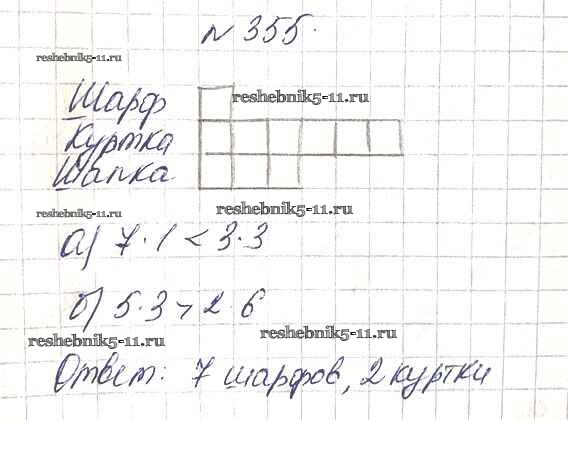 № 355.
reshebnik5-11.ru
Шарф
reshebnik5-11.ru
Куртка
Шапка
reshebnik5-11.ru
reshebnik5-11.ru
а) 7·1 < 3·3
б) 5·3 > 2 6
reshebnik5-11.ru
reshebnik5-11.ru
Ответ: 7 шарфов, 2 куртки